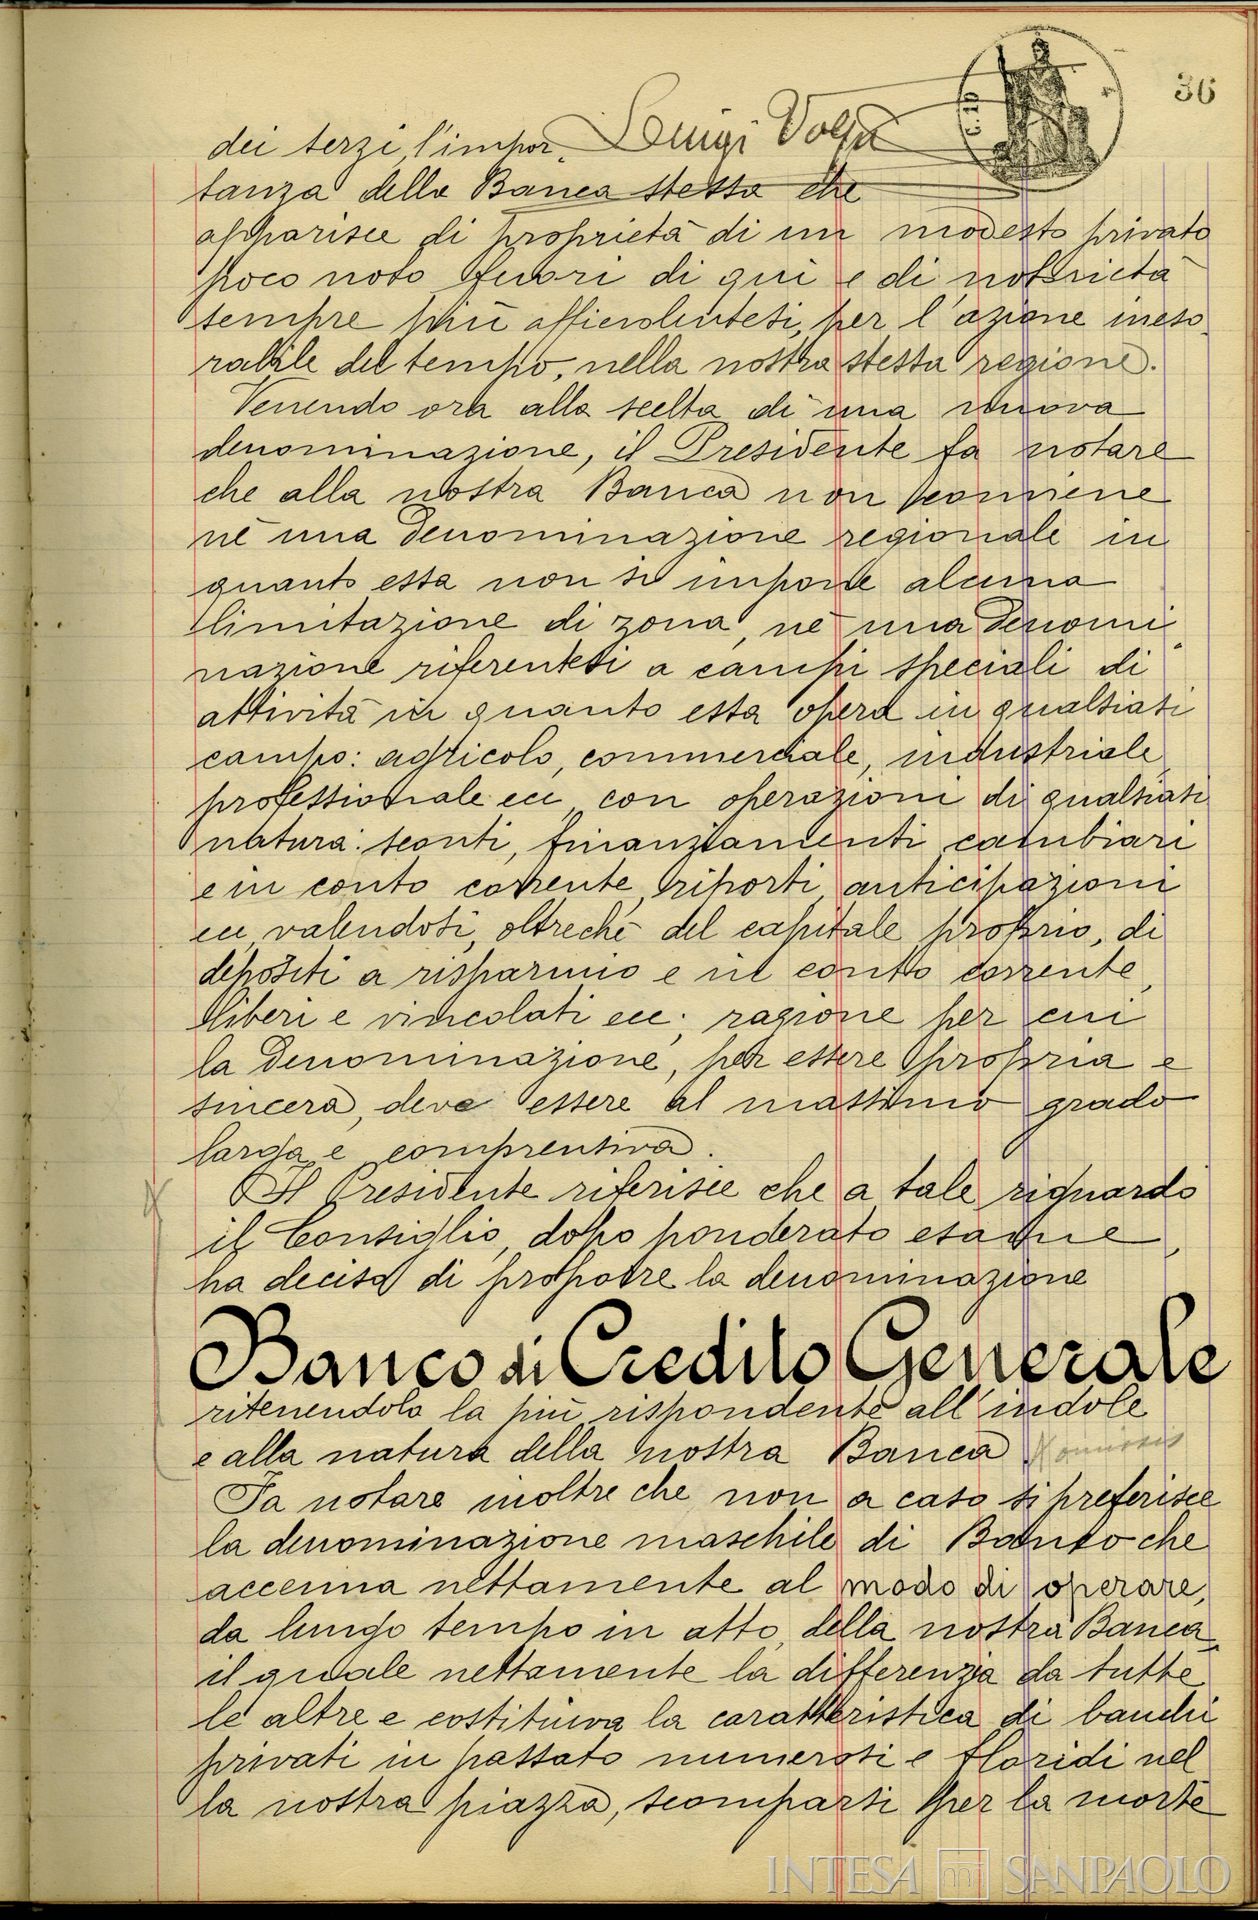 36
C. 10
4
Luigi Volpi
dei terzi, l'impor-
tanza della Banca stessa che
apparisce di proprietà di un modesto privato
poco noto fuori di qui e di notorietà
sempre più affievolentesi, per l'azione ineso-
rabile del tempo, nella nostra stessa regione.
Venendo ora alla scelta di una nuova
denominazione, il Presidente fa notare
che alla nostra Banca non conviene
nè una denominazione regionale in
quanto essa non si impone alcuna
limitazione di zona, nè una denomi-
nazione riferentesi a campi speciali di
attività in quanto essa opera in qualsiasi
campo: agricolo, commerciale, industriale,
professionale ecc, con operazioni di qualsiasi
natura: sconti, finanziamenti cambiari
e in conto corrente, riporti, anticipazioni
ecc, valendosi, oltreché del capitale proprio, di
depositi a risparmio e in conto corrente,
liberi e vincolati ecc; ragione per cui
la denominazione, per essere propria e
sincera, deve essere al massimo grado
larga e comprensiva.
Il Presidente riferisce che a tale riguardo
il Consiglio, dopo ponderato esame,
ha deciso di proporre la denominazione
Banco di Credito Generale
ritenendola la più rispondente all'indole
e alla natura della nostra Banca. omissis
Fa notare inoltre che non a caso si preferisce
la denominazione maschile di Banco che
accenna nettamente al modo di operare,
da lungo tempo in atto, della nostra Banca,
il quale nettamente la differenzia da tutte
le altre e costituiva la caratteristica di banchi
privati in passato numerosi e floridi nel
la nostra piazza, scomparsi per la morte
INTESA SANPAOLO